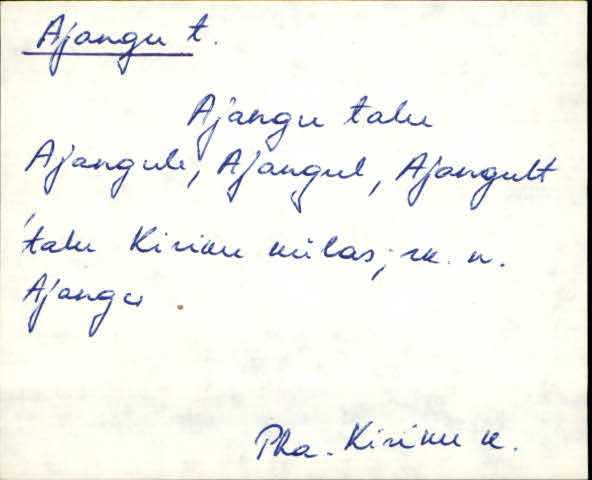 Ajangu t.
Ajangu talu
Ajangule, Ajangul, Ajangult
'talu Kiriku külas; rk. n.
Ajangu.
Pha. Kiriku k.